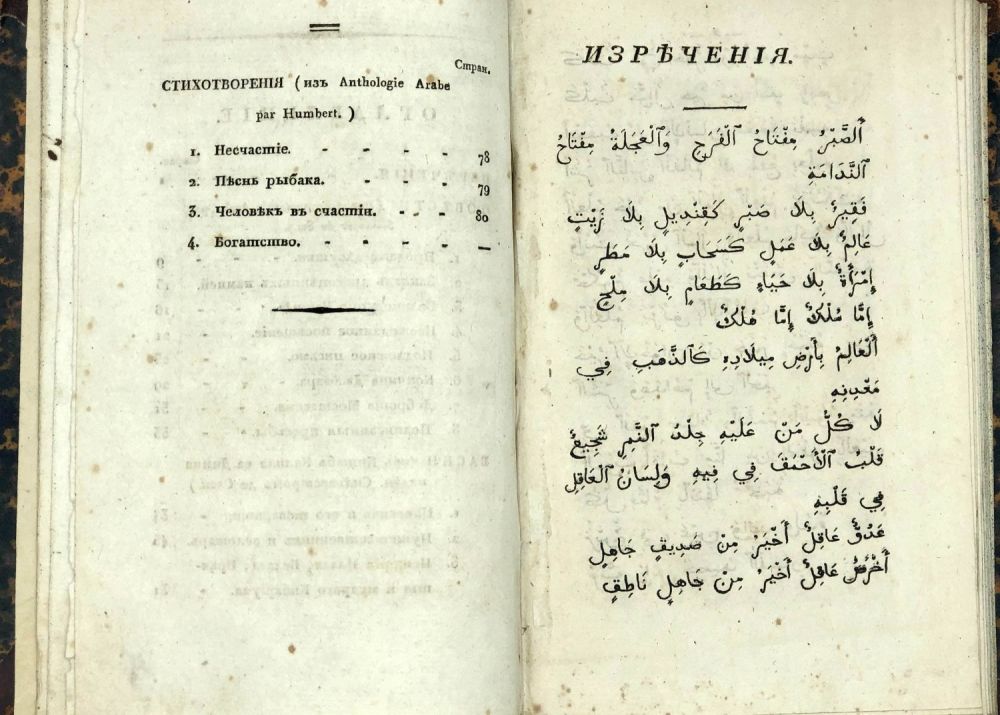 Стран.
СТИХОТВОРЕНІЯ (изъ Anthologie Arabe
par Humbert.)
1. Несчастіе. - - - - 78
2. Пѣснь рыбака. - - - 79
3. Человѣкъ въ счастіи. - - - 80
4. Богатство. - - - - —
ИЗРѢЧЕНІЯ.
اَلصَّبْرُ مِفْتَاحُ ٱلْفَرَجِ وَٱلْعَجَلَةُ مِفْتَاحُ
ٱلنَّدَامَةِ
فَقِيرٌ بِلَا صَبْرٍ كَقِنْدِيلٍ بِلَا زَيْتٍ
عَالِمٌ بِلَا عَمَلٍ كَسَحَابٍ بِلَا مَطَرٍ
إِمْرَأَةٌ بِلَا حَيَاءٍ كَطَعَامٍ بِلَا مِلْحٍ
إِمَّا مُلْكٌ إِمَّا هُلْكٌ
اَلْعَالِمُ بِأَرْضِ مِيلَادِهِ كَٱلذَّهَبِ فِي
مَعْدِنِهِ
لَا كُلُّ مَنْ عَلَيْهِ جِلْدُ ٱلنَّمِرِ شَجِيعٌ
قَلْبُ ٱلْأَحْمَقِ فِي فِيهِ وَلِسَانُ ٱلْعَاقِلِ
فِي قَلْبِهِ
عَدُوٌّ عَاقِلٌ أَخْيَرُ مِنْ صَدِيقٍ جَاهِلٍ
أَخْرَسُ عَاقِلٌ أَخْيَرُ مِنْ جَاهِلٍ نَاطِقٍ